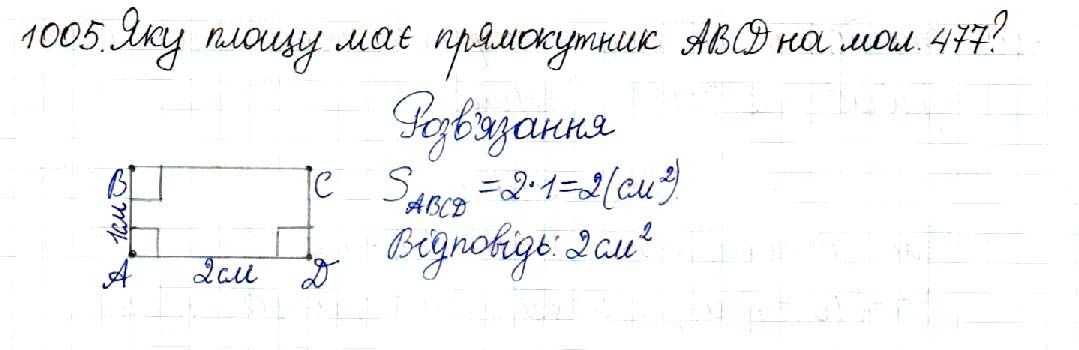 1005. Яку площу має прямокутник ABCD на мал. 477?
Розв'язання
B
C
S_ABCD = 2·1=2(см²)
1см
Відповідь: 2см²
A
2см
D